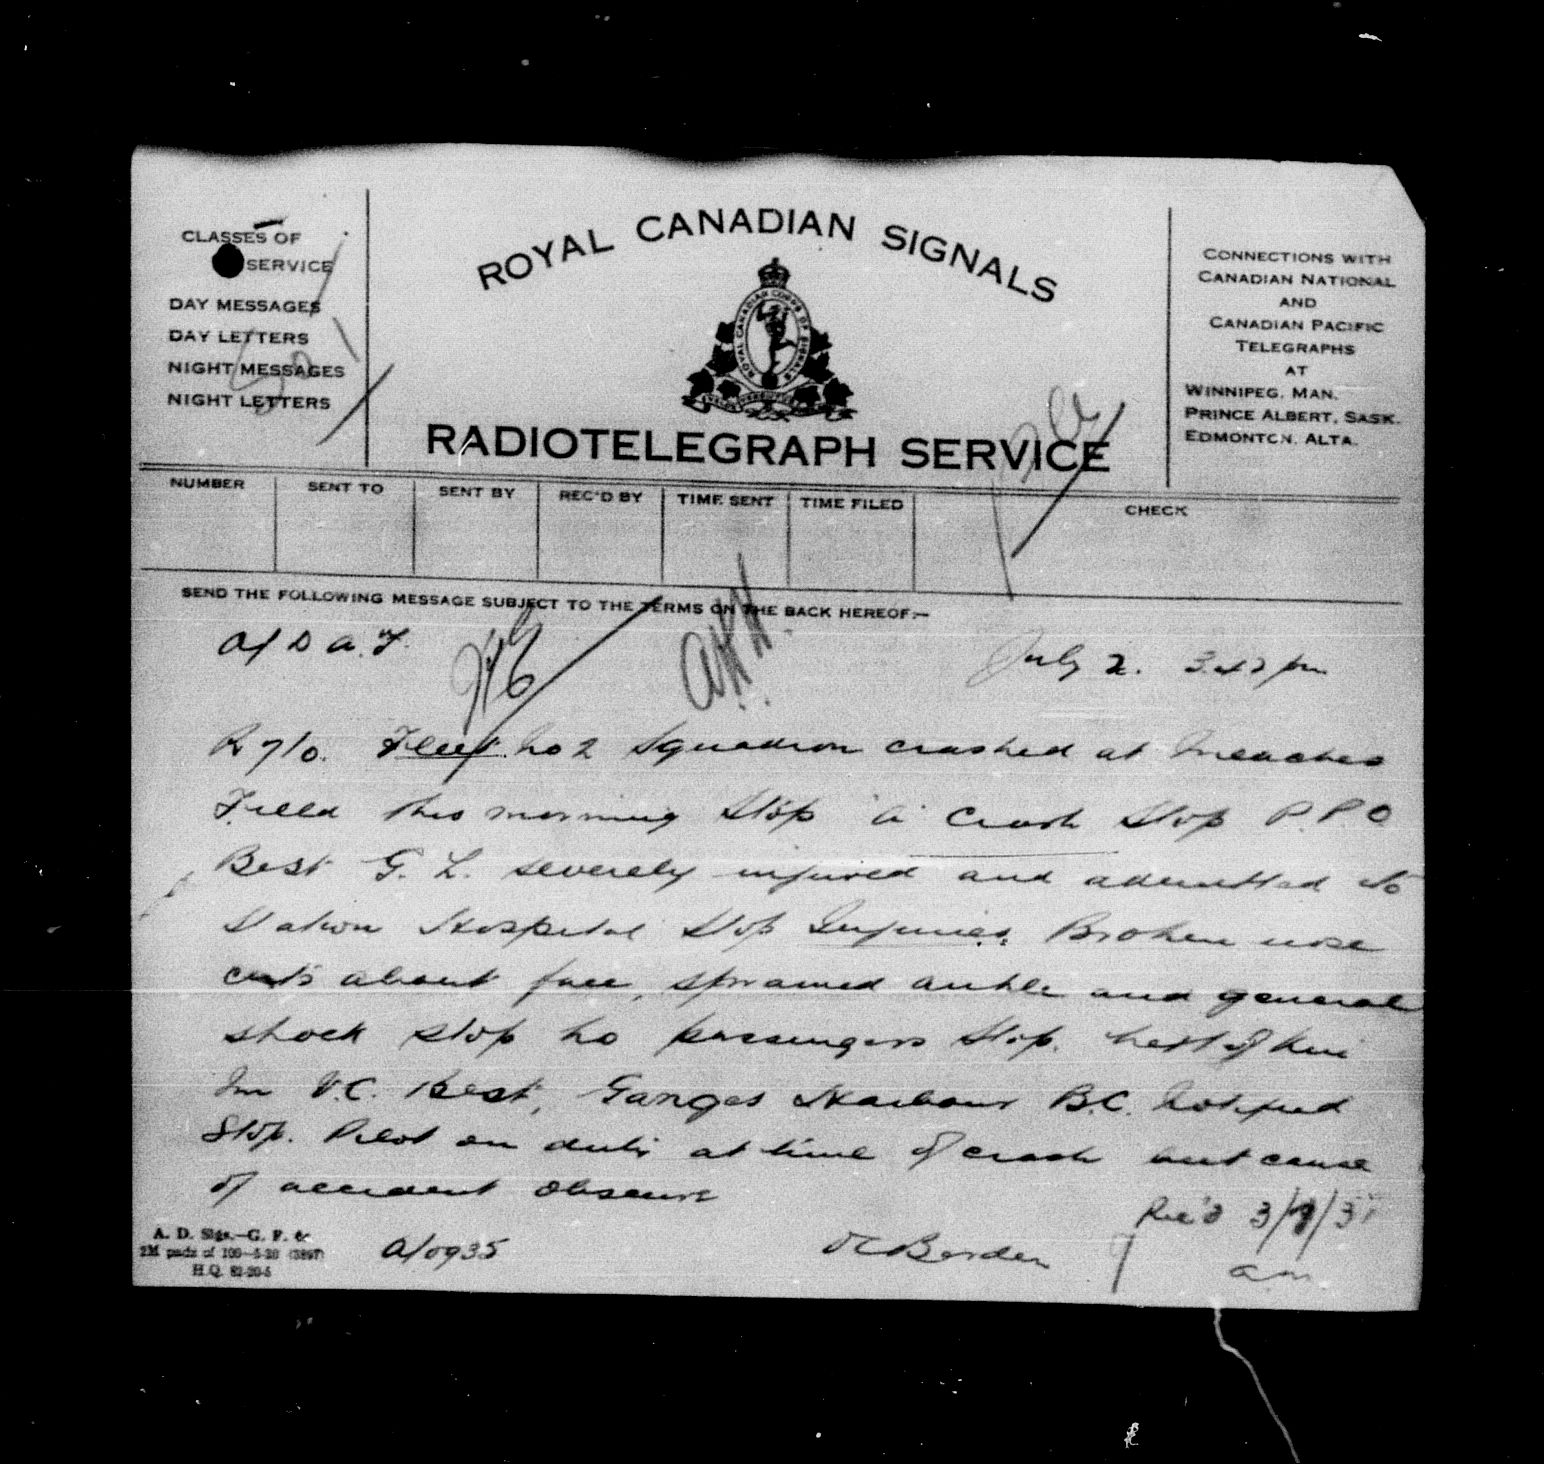 CLASSES OF
SERVICE
DAY MESSAGES
DAY LETTERS
NIGHT MESSAGES
NIGHT LETTERS
ROYAL CANADIAN SIGNALS
ROYAL CANADIAN CORPS OF SIGNALS
RADIOTELEGRAPH SERVICE
CONNECTIONS WITH
CANADIAN NATIONAL
AND
CANADIAN PACIFIC
TELEGRAPHS
AT
WINNIPEG, MAN.
PRINCE ALBERT, SASK.
EDMONTON, ALTA.
NUMBER SENT TO SENT BY REC'D BY TIME SENT TIME FILED CHECK
SEND THE FOLLOWING MESSAGE SUBJECT TO THE TERMS ON THE BACK HEREOF:—
July 2. pm
Fleet No 2 Squadron crashed at
Field this morning Stop "A" Crash Stop P.P.O
Best G. L. severely injured and admitted to
Station Hospital Stop Injuries. Broken nose
cuts about face, sprained ankle and general
shock stop no passengers Stop. Next of kin
Mr V.C. Best, Ganges Harbour B.C. Notified
Stop. Pilot on duty at time of crash but cause
of accident obscure
Rec'd
A. D. Sigs.—G. F. &
2M pads of 100
H.Q.
A/0935
OC Borden
am.